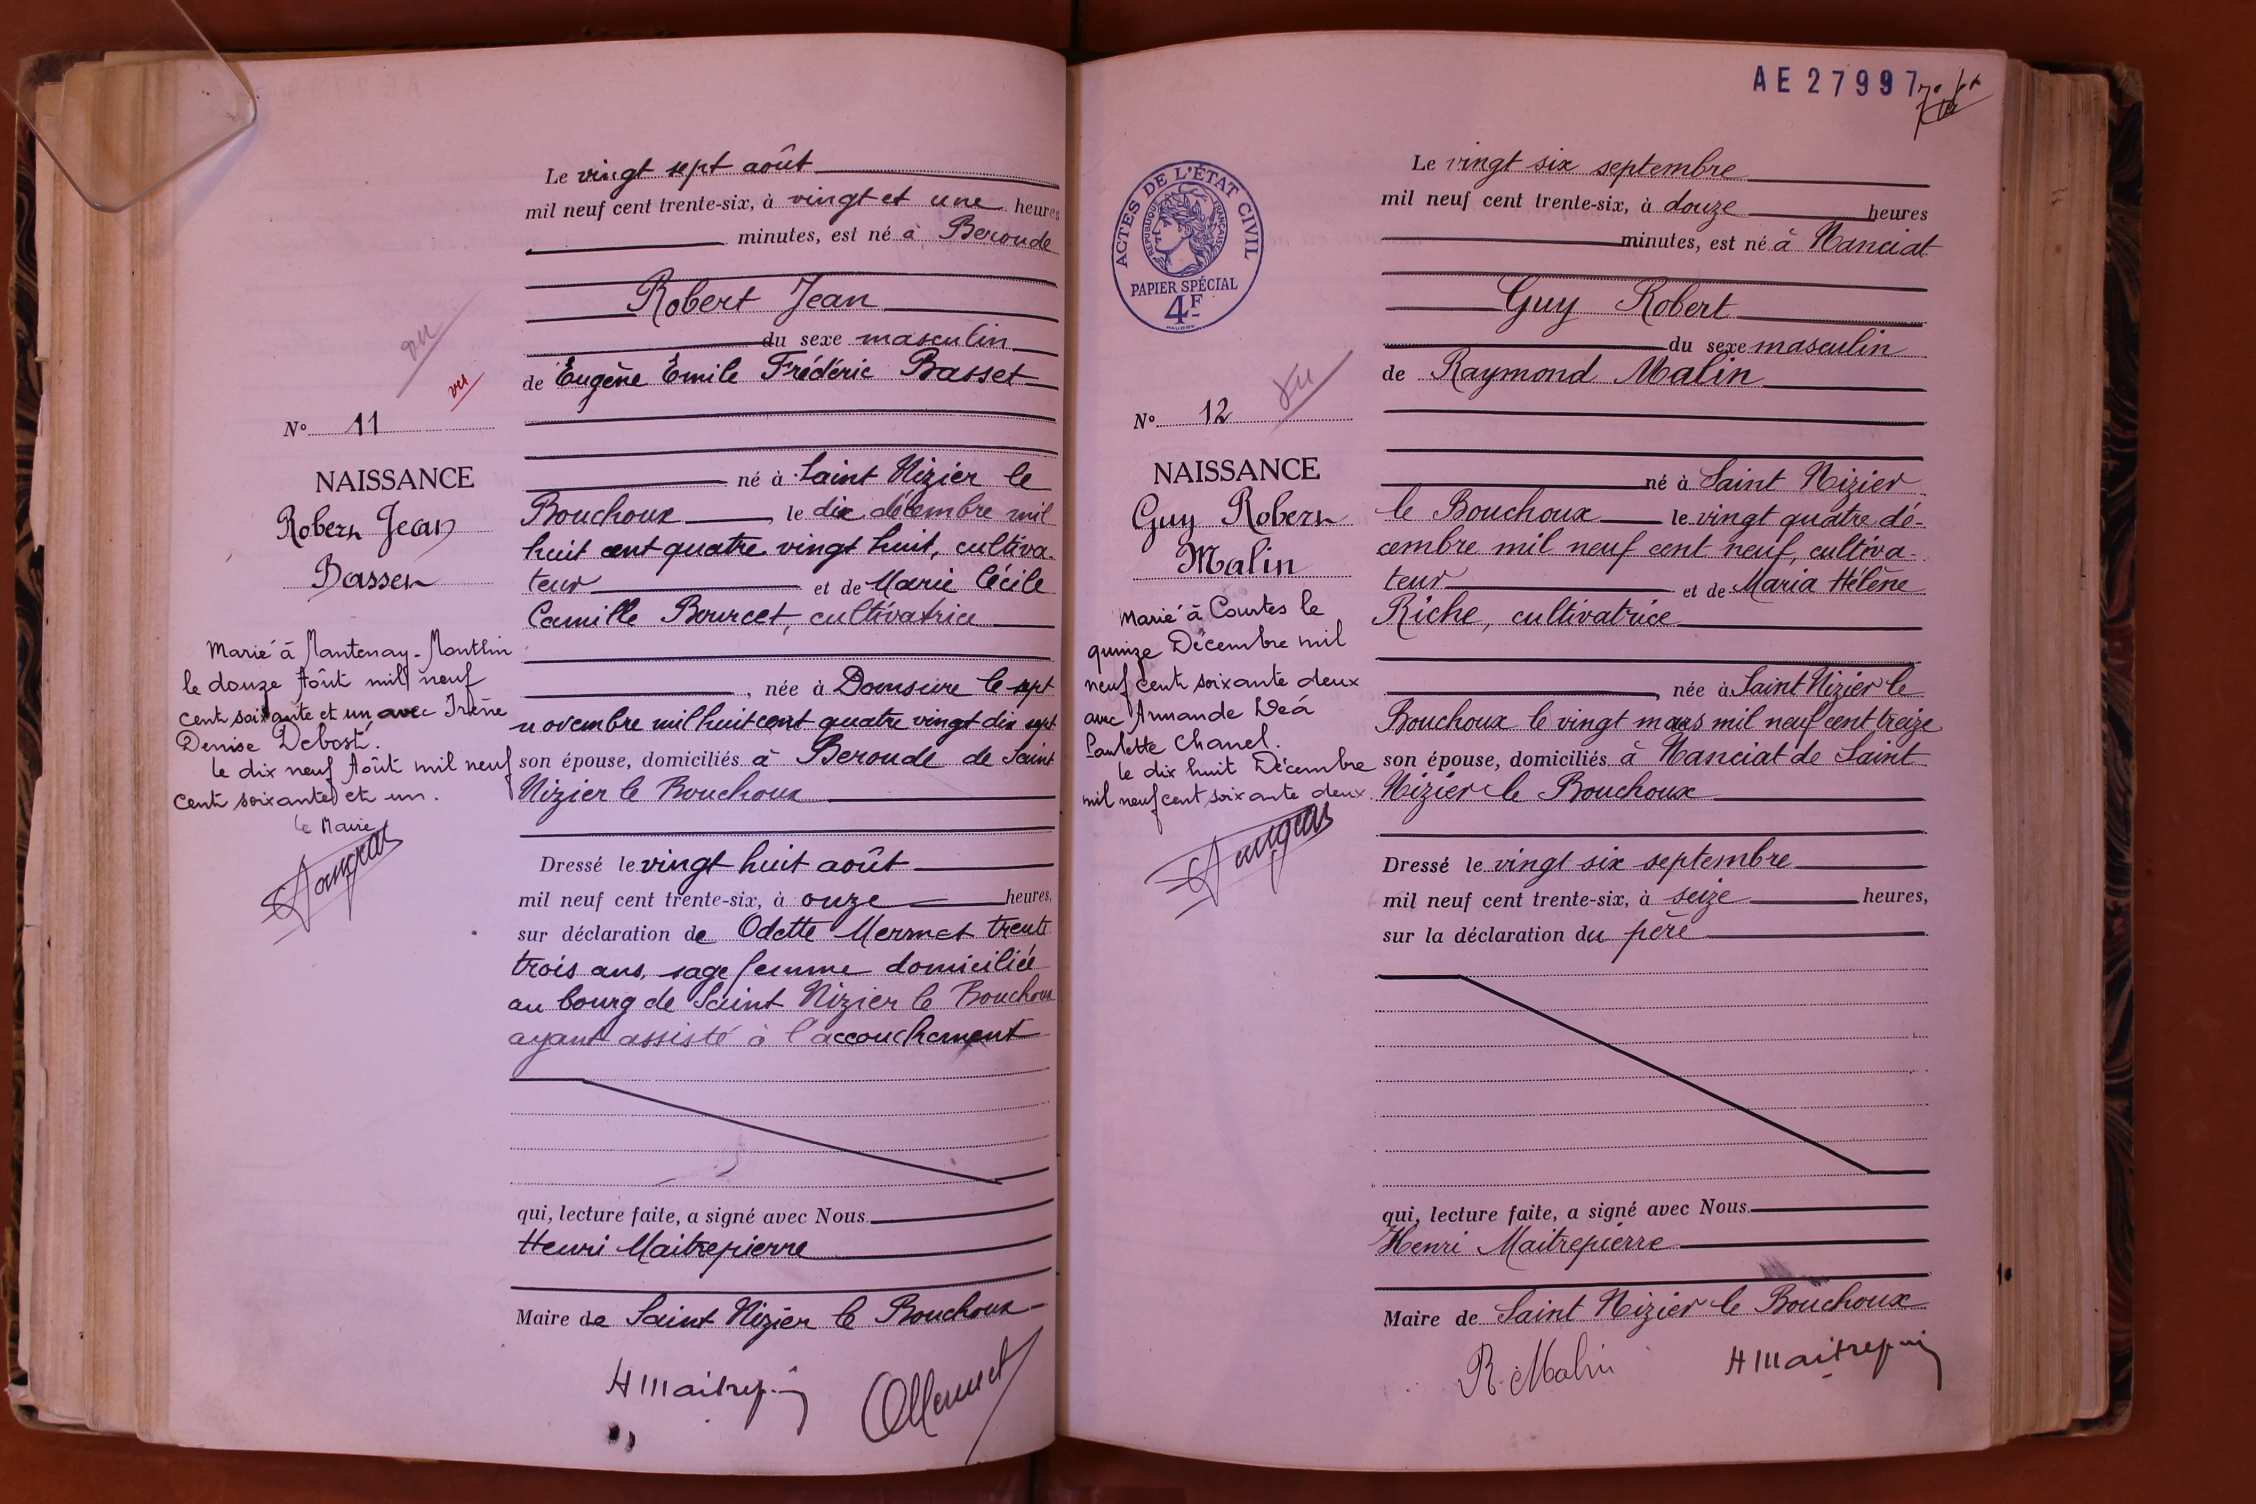 Le vingt sept août
mil neuf cent trente-six, à vingt et une heures
minutes, est né à Beroude
Robert Jean
du sexe masculin
de Eugène Emile Frédéric Basset
vu
vu
N° 11
NAISSANCE
Robert Jean
Basset
né à Saint Nizier le
Bouchoux le dix décembre mil
huit cent quatre vingt huit, cultiva-
teur et de Marie Cécile
Camille Bourcet, cultivatrice
, née à Domsure le sept
novembre mil huit cent quatre vingt dix sept
son épouse, domiciliés à Beroude de Saint
Nizier le Bouchoux
Marié à Mantenay-Montlin
le douze Août mil neuf
cent soixante et un avec Irène
Denise Debost.
le dix neuf Août mil neuf
cent soixante et un.
Le Maire
Dressé le vingt huit août
mil neuf cent trente-six, à onze heures,
sur déclaration de Odette Mermet trente
trois ans, sage femme domiciliée
au bourg de Saint Nizier le Bouchoux
ayant assisté à l'accouchement
qui, lecture faite, a signé avec Nous
Henri Maitrepierre
Maire de Saint Nizier le Bouchoux
AE 27997
ACTES DE L'ÉTAT CIVIL
RÉPUBLIQUE FRANÇAISE
PAPIER SPÉCIAL
4F
Le vingt six septembre
mil neuf cent trente-six, à douze heures
minutes, est né à Nanciat
Guy Robert
du sexe masculin
de Raymond Malin
vu
N° 12
NAISSANCE
Guy Robert
Malin
né à Saint Nizier
le Bouchoux le vingt quatre dé-
cembre mil neuf cent neuf, cultiva-
teur et de Maria Hélène
Riche, cultivatrice
, née à Saint Nizier le
Bouchoux le vingt mars mil neuf cent treize
son épouse, domiciliés à Nanciat de Saint
Nizier le Bouchoux
Marié à Courtes le
quinze Décembre mil
neuf cent soixante deux
avec Armande Déa
Paulette Chanel.
le dix huit Décembre
mil neuf cent soixante deux.
Dressé le vingt six septembre
mil neuf cent trente-six, à seize heures,
sur la déclaration du père
qui, lecture faite, a signé avec Nous
Henri Maitrepierre
Maire de Saint Nizier le Bouchoux
R. Malin